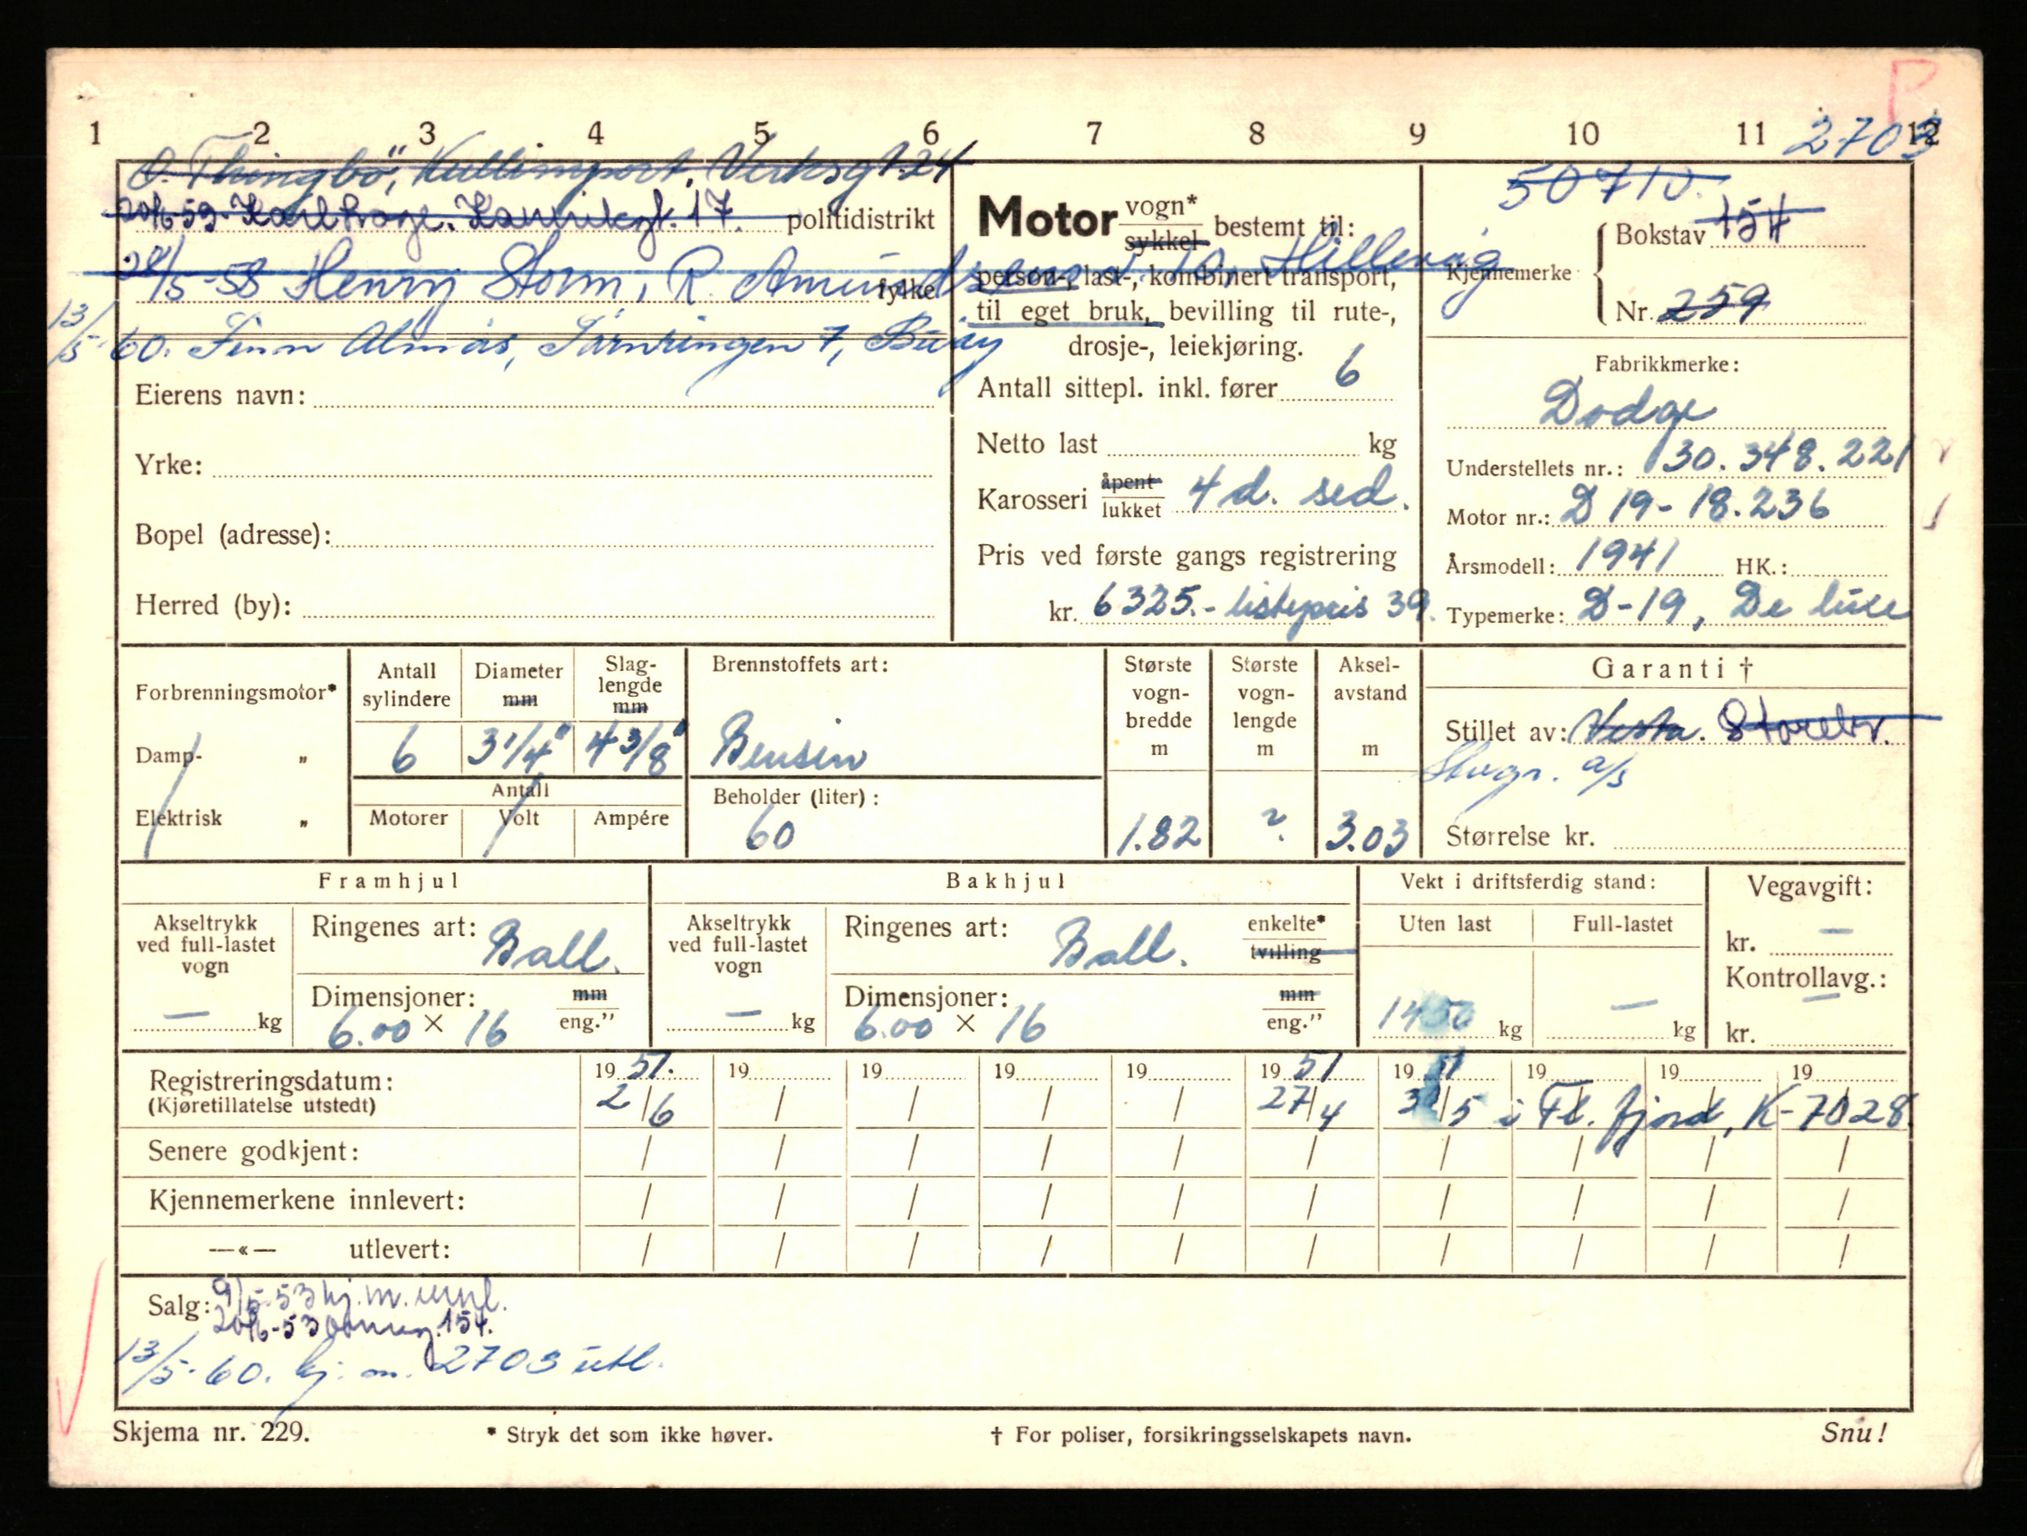 P
1 2 3 4 5 6 7 8 9 10 11 12
2703
O. Thingbö, Kullimport, Verksgt. 24
50710.
20/6-53. Karl Hroge. Kannikgt. 17. politidistrikt
28/5-58 Henry Storm, R. Amundsens, Hillevåg
fylke
13/5-60. Finn Almås, Tårnringen 7, Buøy
Eierens navn:
Yrke:
Bopel (adresse):
Herred (by):
Motor vogn* sykkel bestemt til:
person-, last-, kombinert transport,
til eget bruk, bevilling til rute-,
drosje-, leiekjøring.
Antall sittepl. inkl. fører 6
Netto last kg
Karosseri åpent lukket 4 d. sed.
Pris ved første gangs registrering
kr. 6325.- listepris 39.
Kjennemerke
Bokstav 154
Nr. 259
Fabrikkmerke:
Dodge
Understellets nr.: 30.348.221
Motor nr.: D 19-18.236
Årsmodell: 1941 HK.:
Typemerke: D-19, De luxe
Forbrenningsmotor*
Damp- "
Elektrisk "
Antall sylindere 6
Diameter mm 3 1/4"
Slag-lengde mm 4 3/8"
Antall
Motorer Volt Ampére
Brennstoffets art:
Bensin
Beholder (liter):
60
Største vogn-bredde m 1.82
Største vogn-lengde m ?
Aksel-avstand m 3.03
Garanti †
Stillet av: Vesta. Storebr.
a/s
Størrelse kr.
Framhjul
Akseltrykk ved full-lastet vogn — kg
Ringenes art: Ball.
Dimensjoner: mm eng."
6.00 × 16
Bakhjul
Akseltrykk ved full-lastet vogn — kg
Ringenes art: Ball. enkelte* tvilling
Dimensjoner: mm eng."
6.00 × 16
Vekt i driftsferdig stand:
Uten last 1450 kg
Full-lastet — kg
Vegavgift:
kr. —
Kontrollavg.:
kr. —
Registreringsdatum: 19 51. 19 19 19 19 19 51 19 51 19 19 19
(Kjøretillatelse utstedt) 2/6 / / / / 27/4 /5 i Fl. fjord, K-7028.
Senere godkjent: / / / / / / / / / /
Kjennemerkene innlevert: / / / / / / / / / /
—«— utlevert: / / / / / / / / / /
Salg: 9/5-53 kj.m. innl.
20/6-53 154.
13/5-60. kj. m. 2703 utl.
Skjema nr. 229.
* Stryk det som ikke høver.
† For poliser, forsikringsselskapets navn.
Snu!